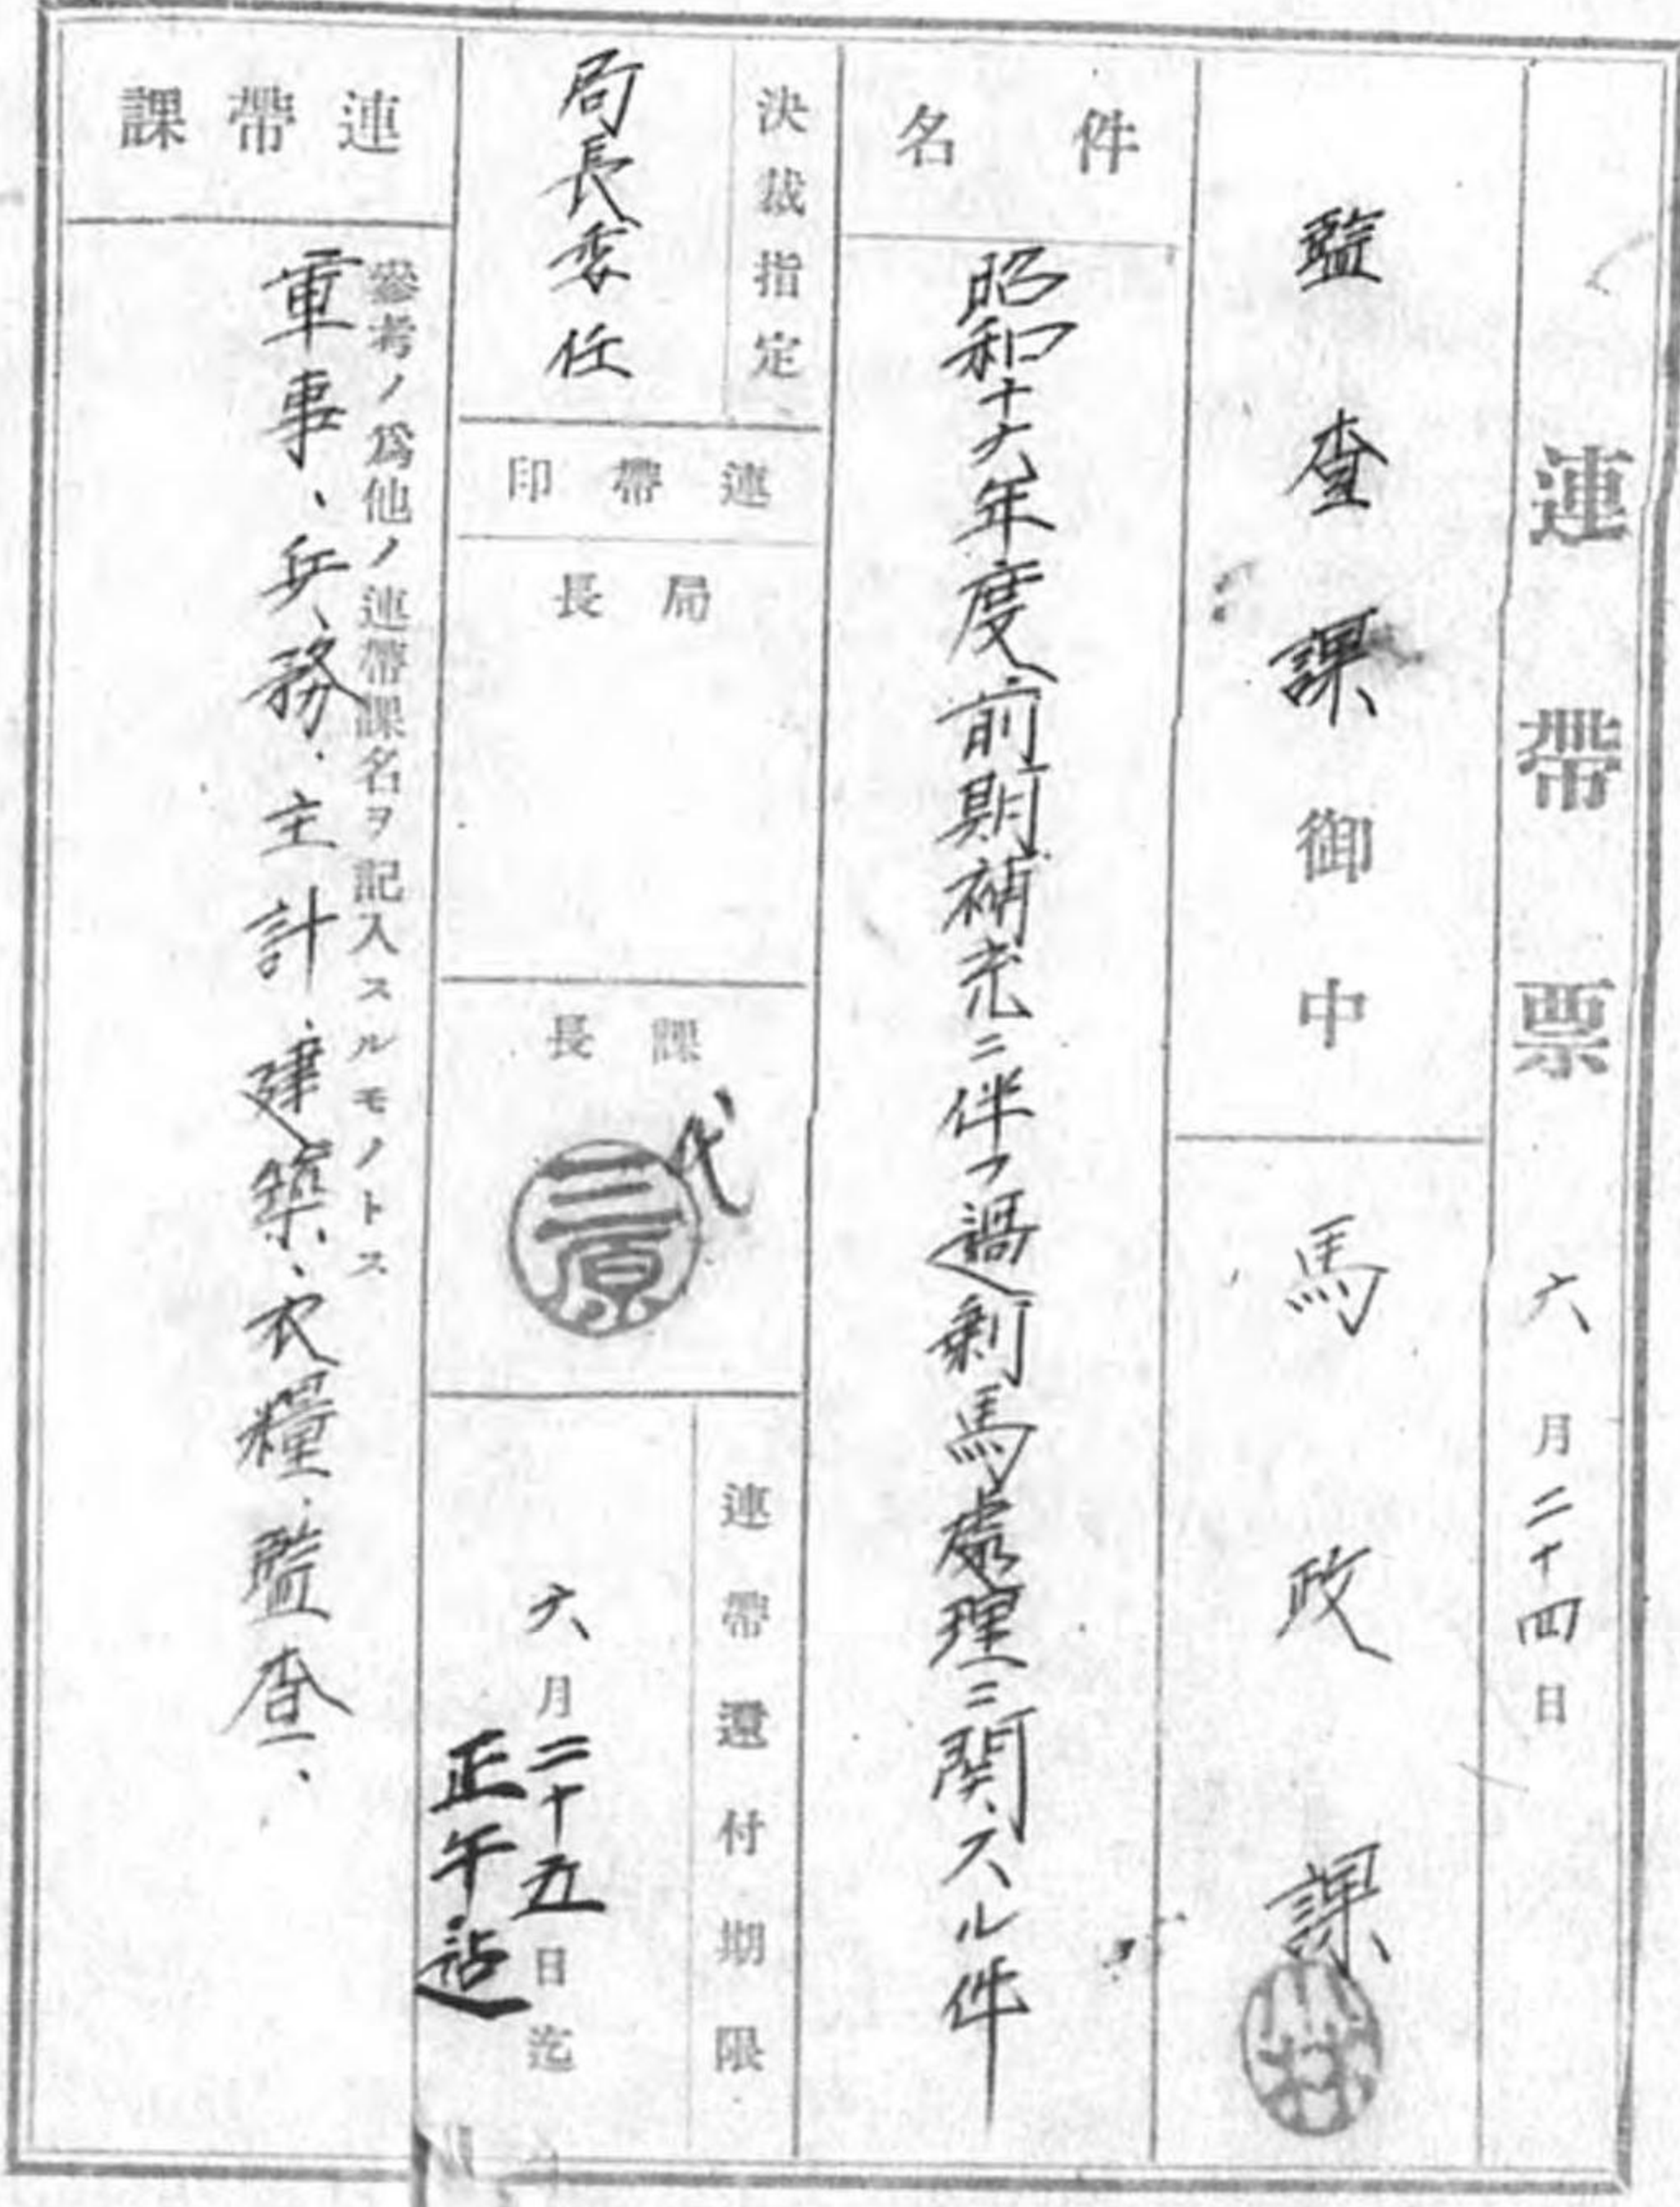 連帶票 六月二十四日
監査課御中
馬政課
小林
件名
昭和十六年度前期補充ニ伴フ過剰馬處理ニ関スル件
決裁指定
局長委任
連帶印
局長
課長
代
三原
連帶還付期限
六月二十五日迄
正午迄
連帶課
參考ノ爲他ノ連帶課名ヲ記入スルモノトス
軍事、兵務、主計、建築、衣糧、監査、